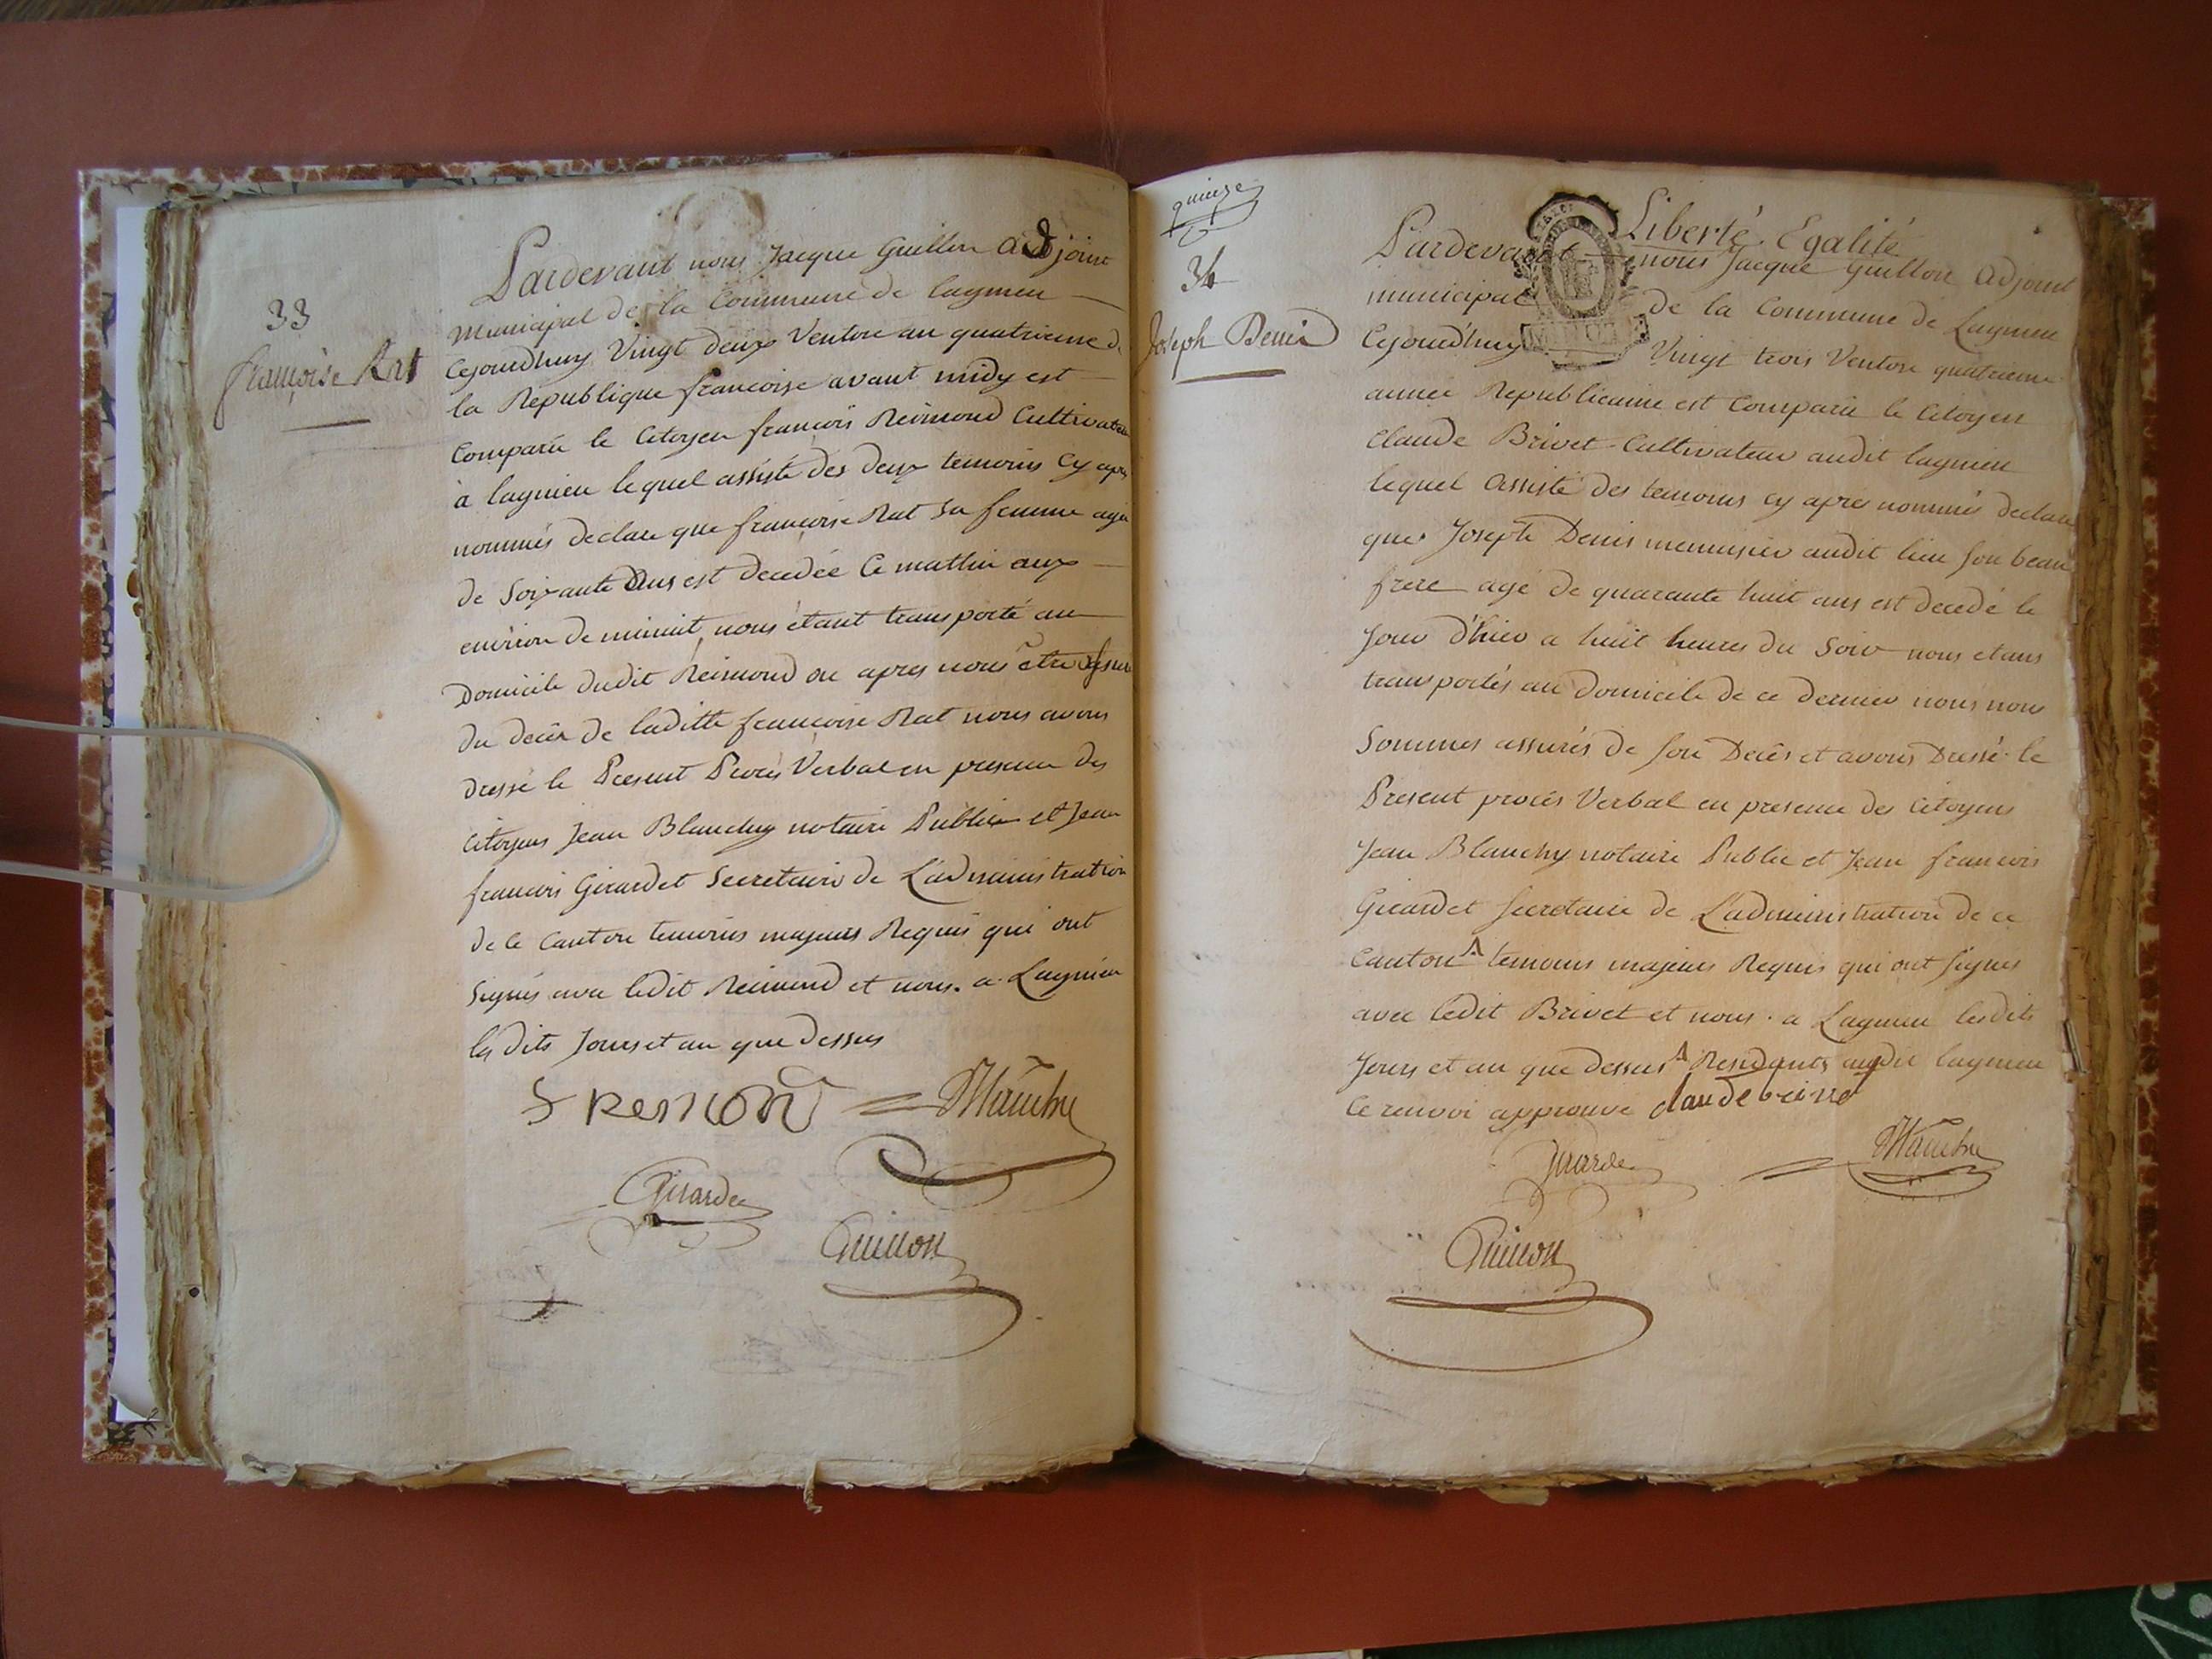 33
françoise Rat
Pardevant nous Jacque Guillon adjoint
Municipal de la Commune de lagnieu
Cejourdhuy Vingt deux Ventose an quatrieme de
la Republique francoise avant midy est
Comparu le Citoyen françois Reimond Cultivateur
à lagnieu lequel assisté des deux temoins Cy apres
nommés declare que françoise Rat sa femme agée
de Soixante Ans est decedée Ce mattin aux
environ de minuit, nous étant transporté au
Domicile dudit Reimond ou apres nous être assuré
du decès de laditte françoise Rat nous avons
dressé le Present Procès Verbal en presence des
Citoyens Jean Blanchy notaire Public et Jean
francois Girardet Secretaire de L'administration
de ce Canton temoins majeurs Requis qui ont
Signés avec ledit Reimond et nous. a Lagnieu
les dits Jours et an que dessus
f Remond
Blanchy
Girardet
Guillon
quinze
34
Joseph Denis
Liberté. Egalité
Pardevant nous Jacque Guillon Adjoint
municipal de la Commune de Lagnieu
Cejourd'huy Vingt trois Ventose quatrieme
année Republicaine est Comparu le Citoyen
Claude Brivet Cultivateur audit lagnieu
lequel Assisté des temoins cy apres nommés declare
que Joseph Denis menuisier audit lieu son beau
frere agé de quarante huit ans est decedé le
Jour d'hier a huit heures du Soir nous etans
transportés au Domicile de ce dernier nous nous
Sommes assurés de son Decès et avons Dressé le
Present procès Verbal en presence des Citoyens
Jean Blanchy notaire Public et Jean francois
Girardet Secretaire de L'administration de ce
Canton temoins majeurs Requis qui ont signés
avec ledit Brivet et nous. a Lagnieu lesdits
Jours et an que dessus Residants audit lagnieu
Ce renvoi approuvé Claude brivet
Girardet
Blanchy
Guillon